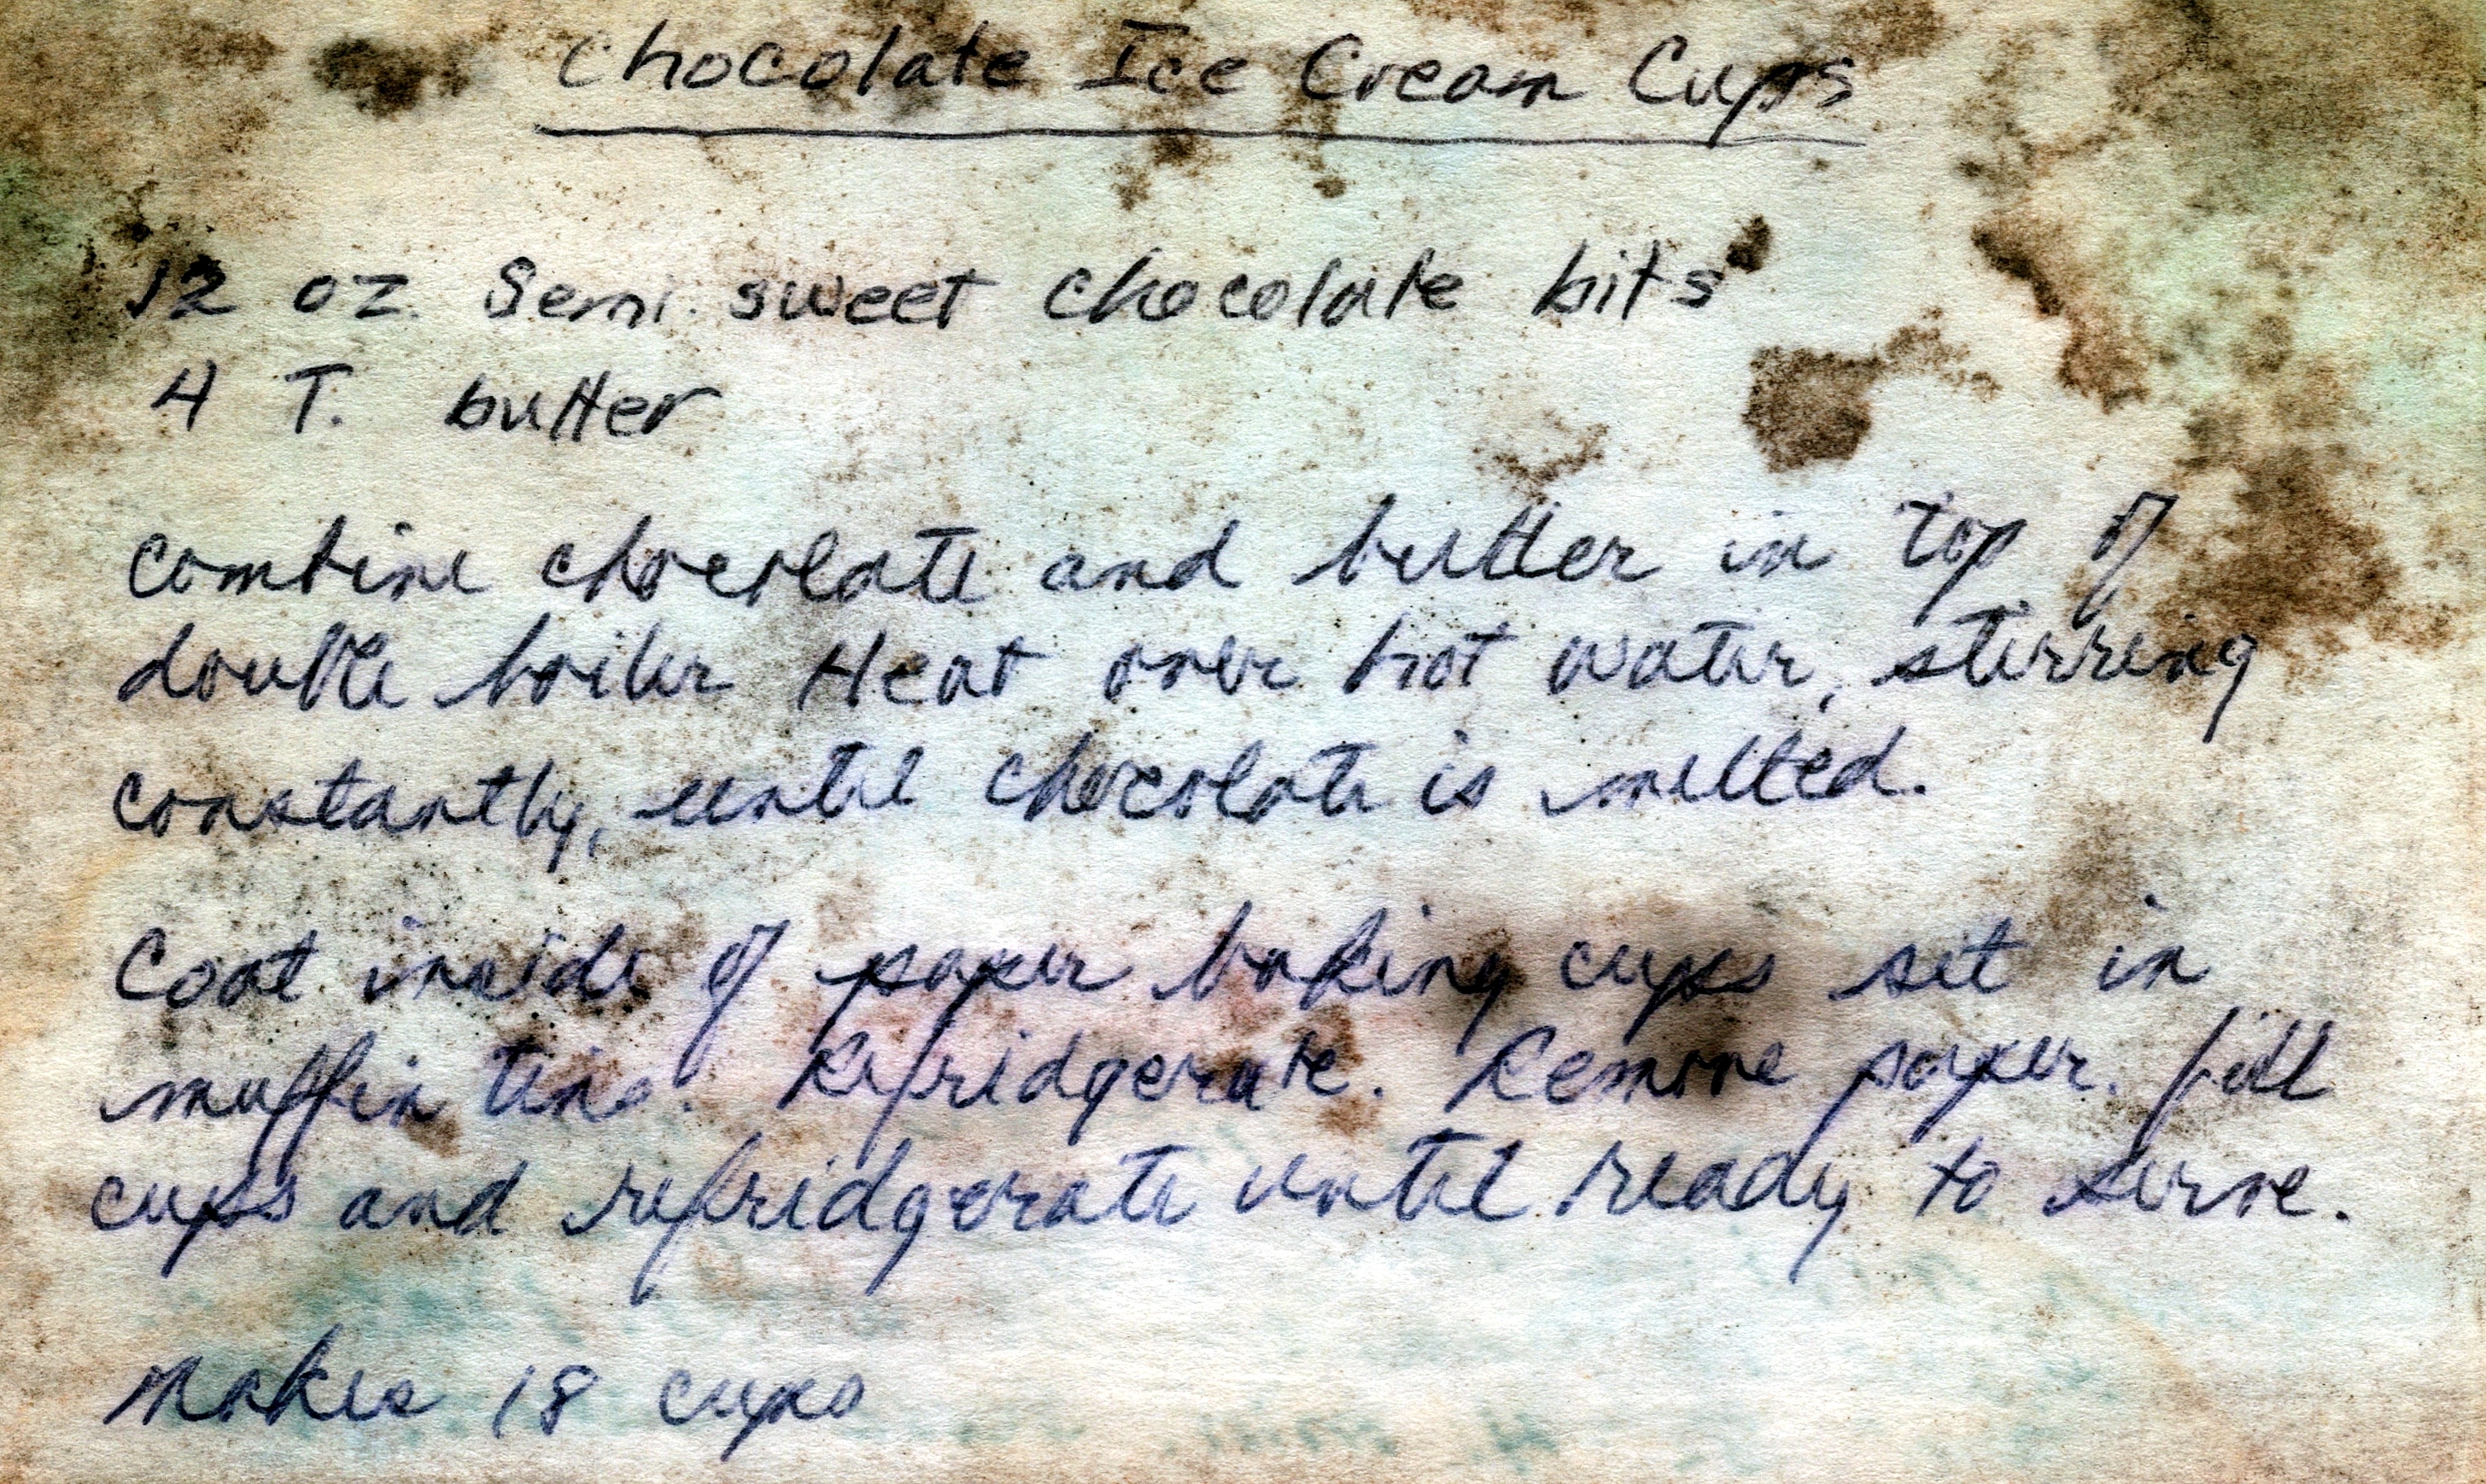 Chocolate Ice Cream Cups
12 oz. Semi. sweet chocolate bits
4 T. butter
Combine chocolate and butter in top of
double boiler Heat over hot water, stirring
constantly, until chocolate is melted.
Coat inside of paper baking cups set in
muffin tins. Refridgerate. Remove paper. fill
cups and refridgerate until ready to serve.
Makes 18 cups